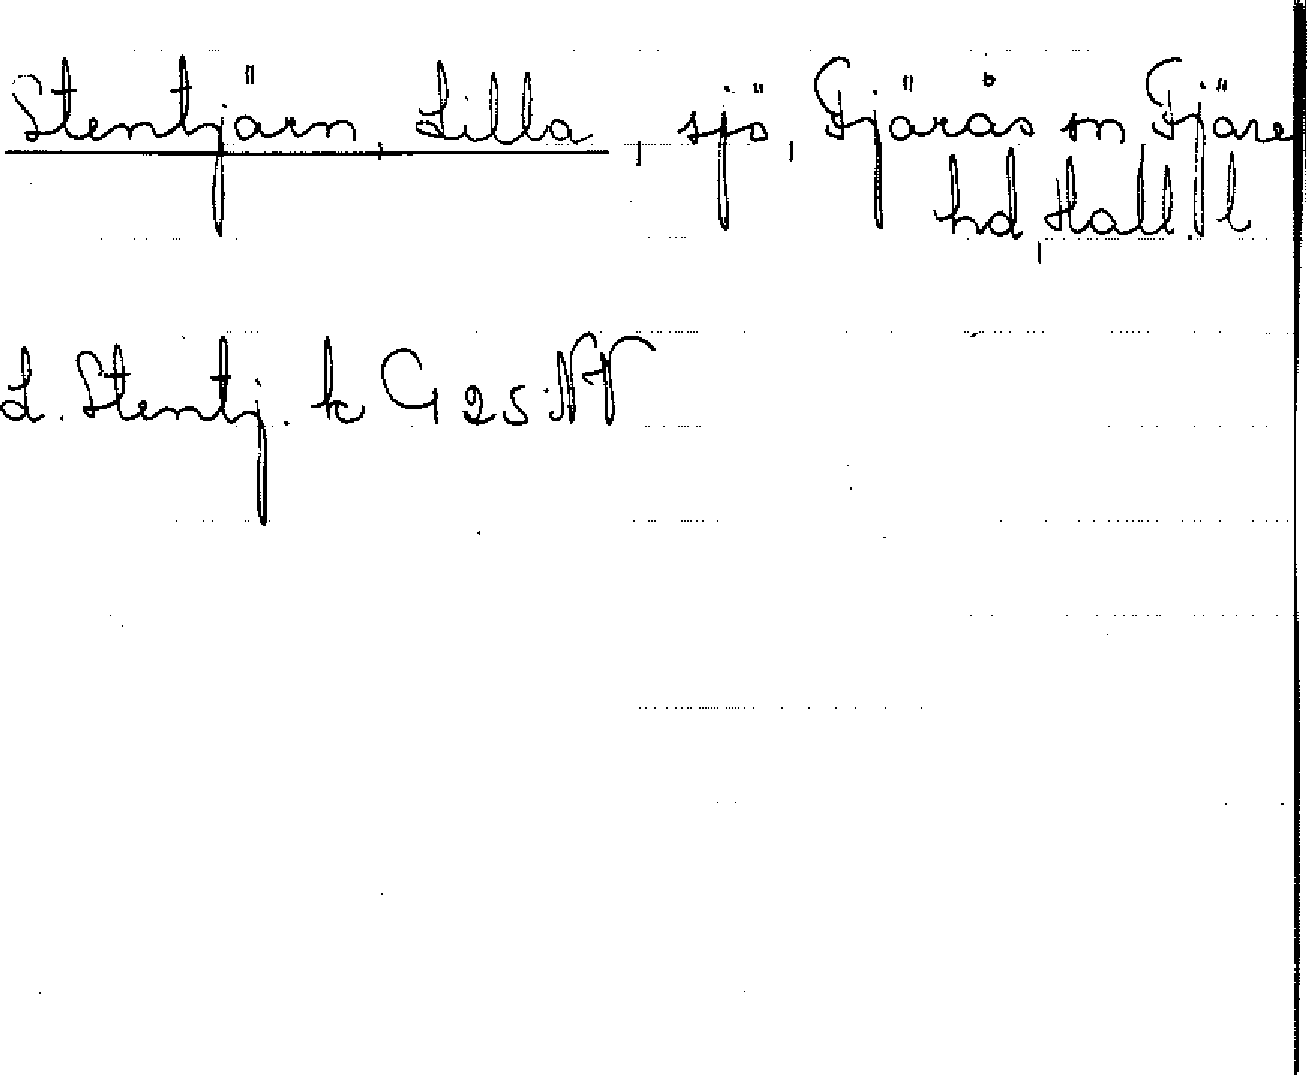 Stentjärn, Lilla, sjö, Fjärås sn Fjäre
hd, Hall. l
L. Stentj. k G 25 NV